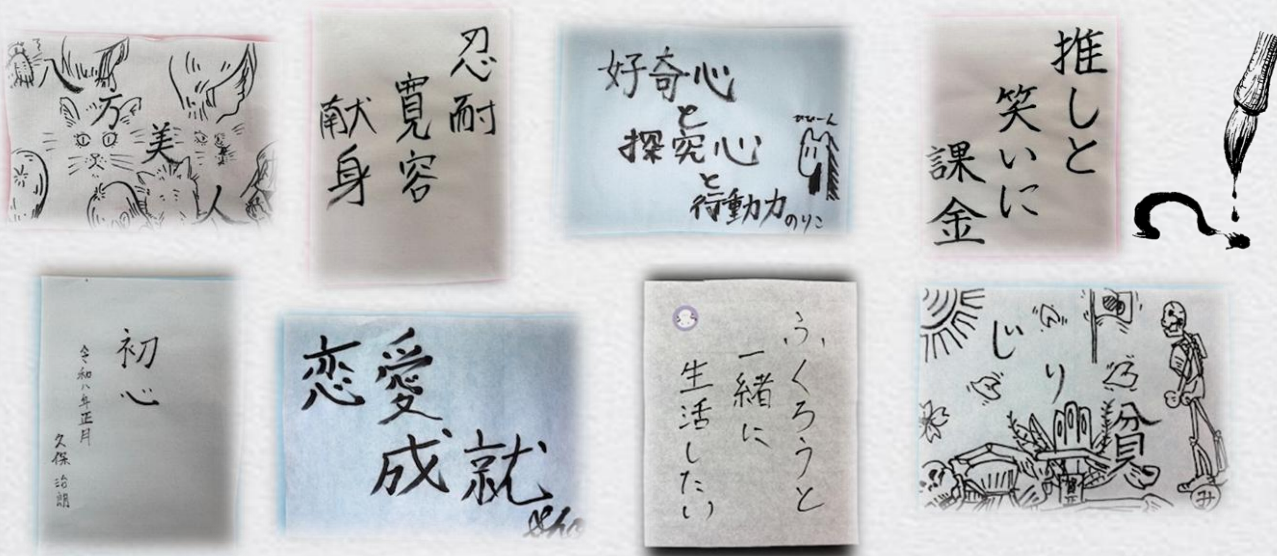 八方美人
忍耐
寛容
献身
好奇心
と
探究心
と
行動力
のりこ
推しと
笑いに
課金
初心
令和八年正月
久保治朗
恋愛
成就
ふくろうと
一緒に
生活したい
じり貧
み